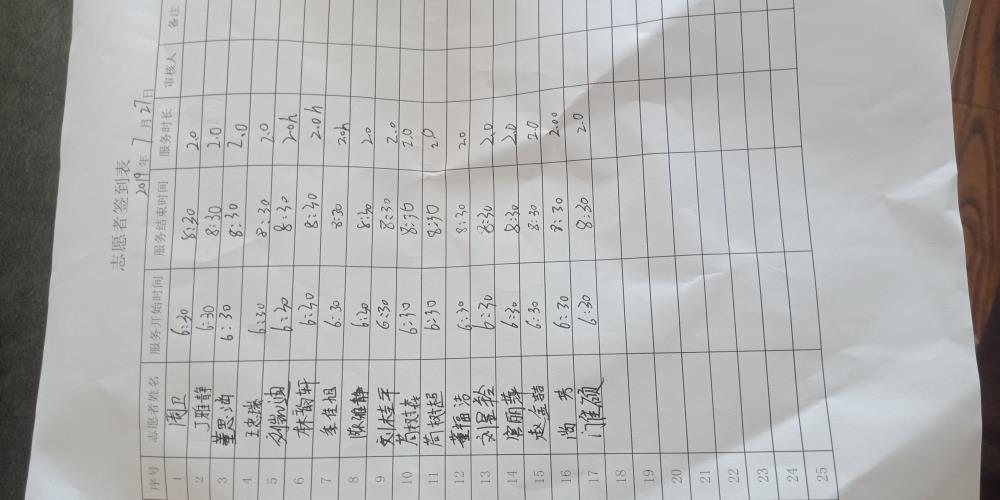 志愿者签到表
2019年 7月27日
序号 志愿者姓名 服务开始时间 服务结束时间 服务时长 审核人 备注
1 周卫 6:30 8:30 2.0
2 丁雅静 6:30 8:30 2.0
3 董思鸿 6:30 8:30 2.0
4 王忠瑞 6:30 8:30 2.0
5 6:30 8:30 2.0h
6 林韵轩 6:30 8:30 2.0h
7 李佳旭 6:30 8:30 2.0h
8 陈雅静 6:30 8:30 2.0
9 刘桂平 6:30 8:30 2.0
10 6:30 8:30 2.0
11 6:30 8:30 2.0
12 董福洁 6:30 8:30 2.0
13 6:30 8:30 2.0
14 6:30 8:30 2.0
15 赵金喆 6:30 8:30 2.0
16 尚秀 6:30 8:30 2.00
17 6:30 8:30 2.0
18
19
20
21
22
23
24
25